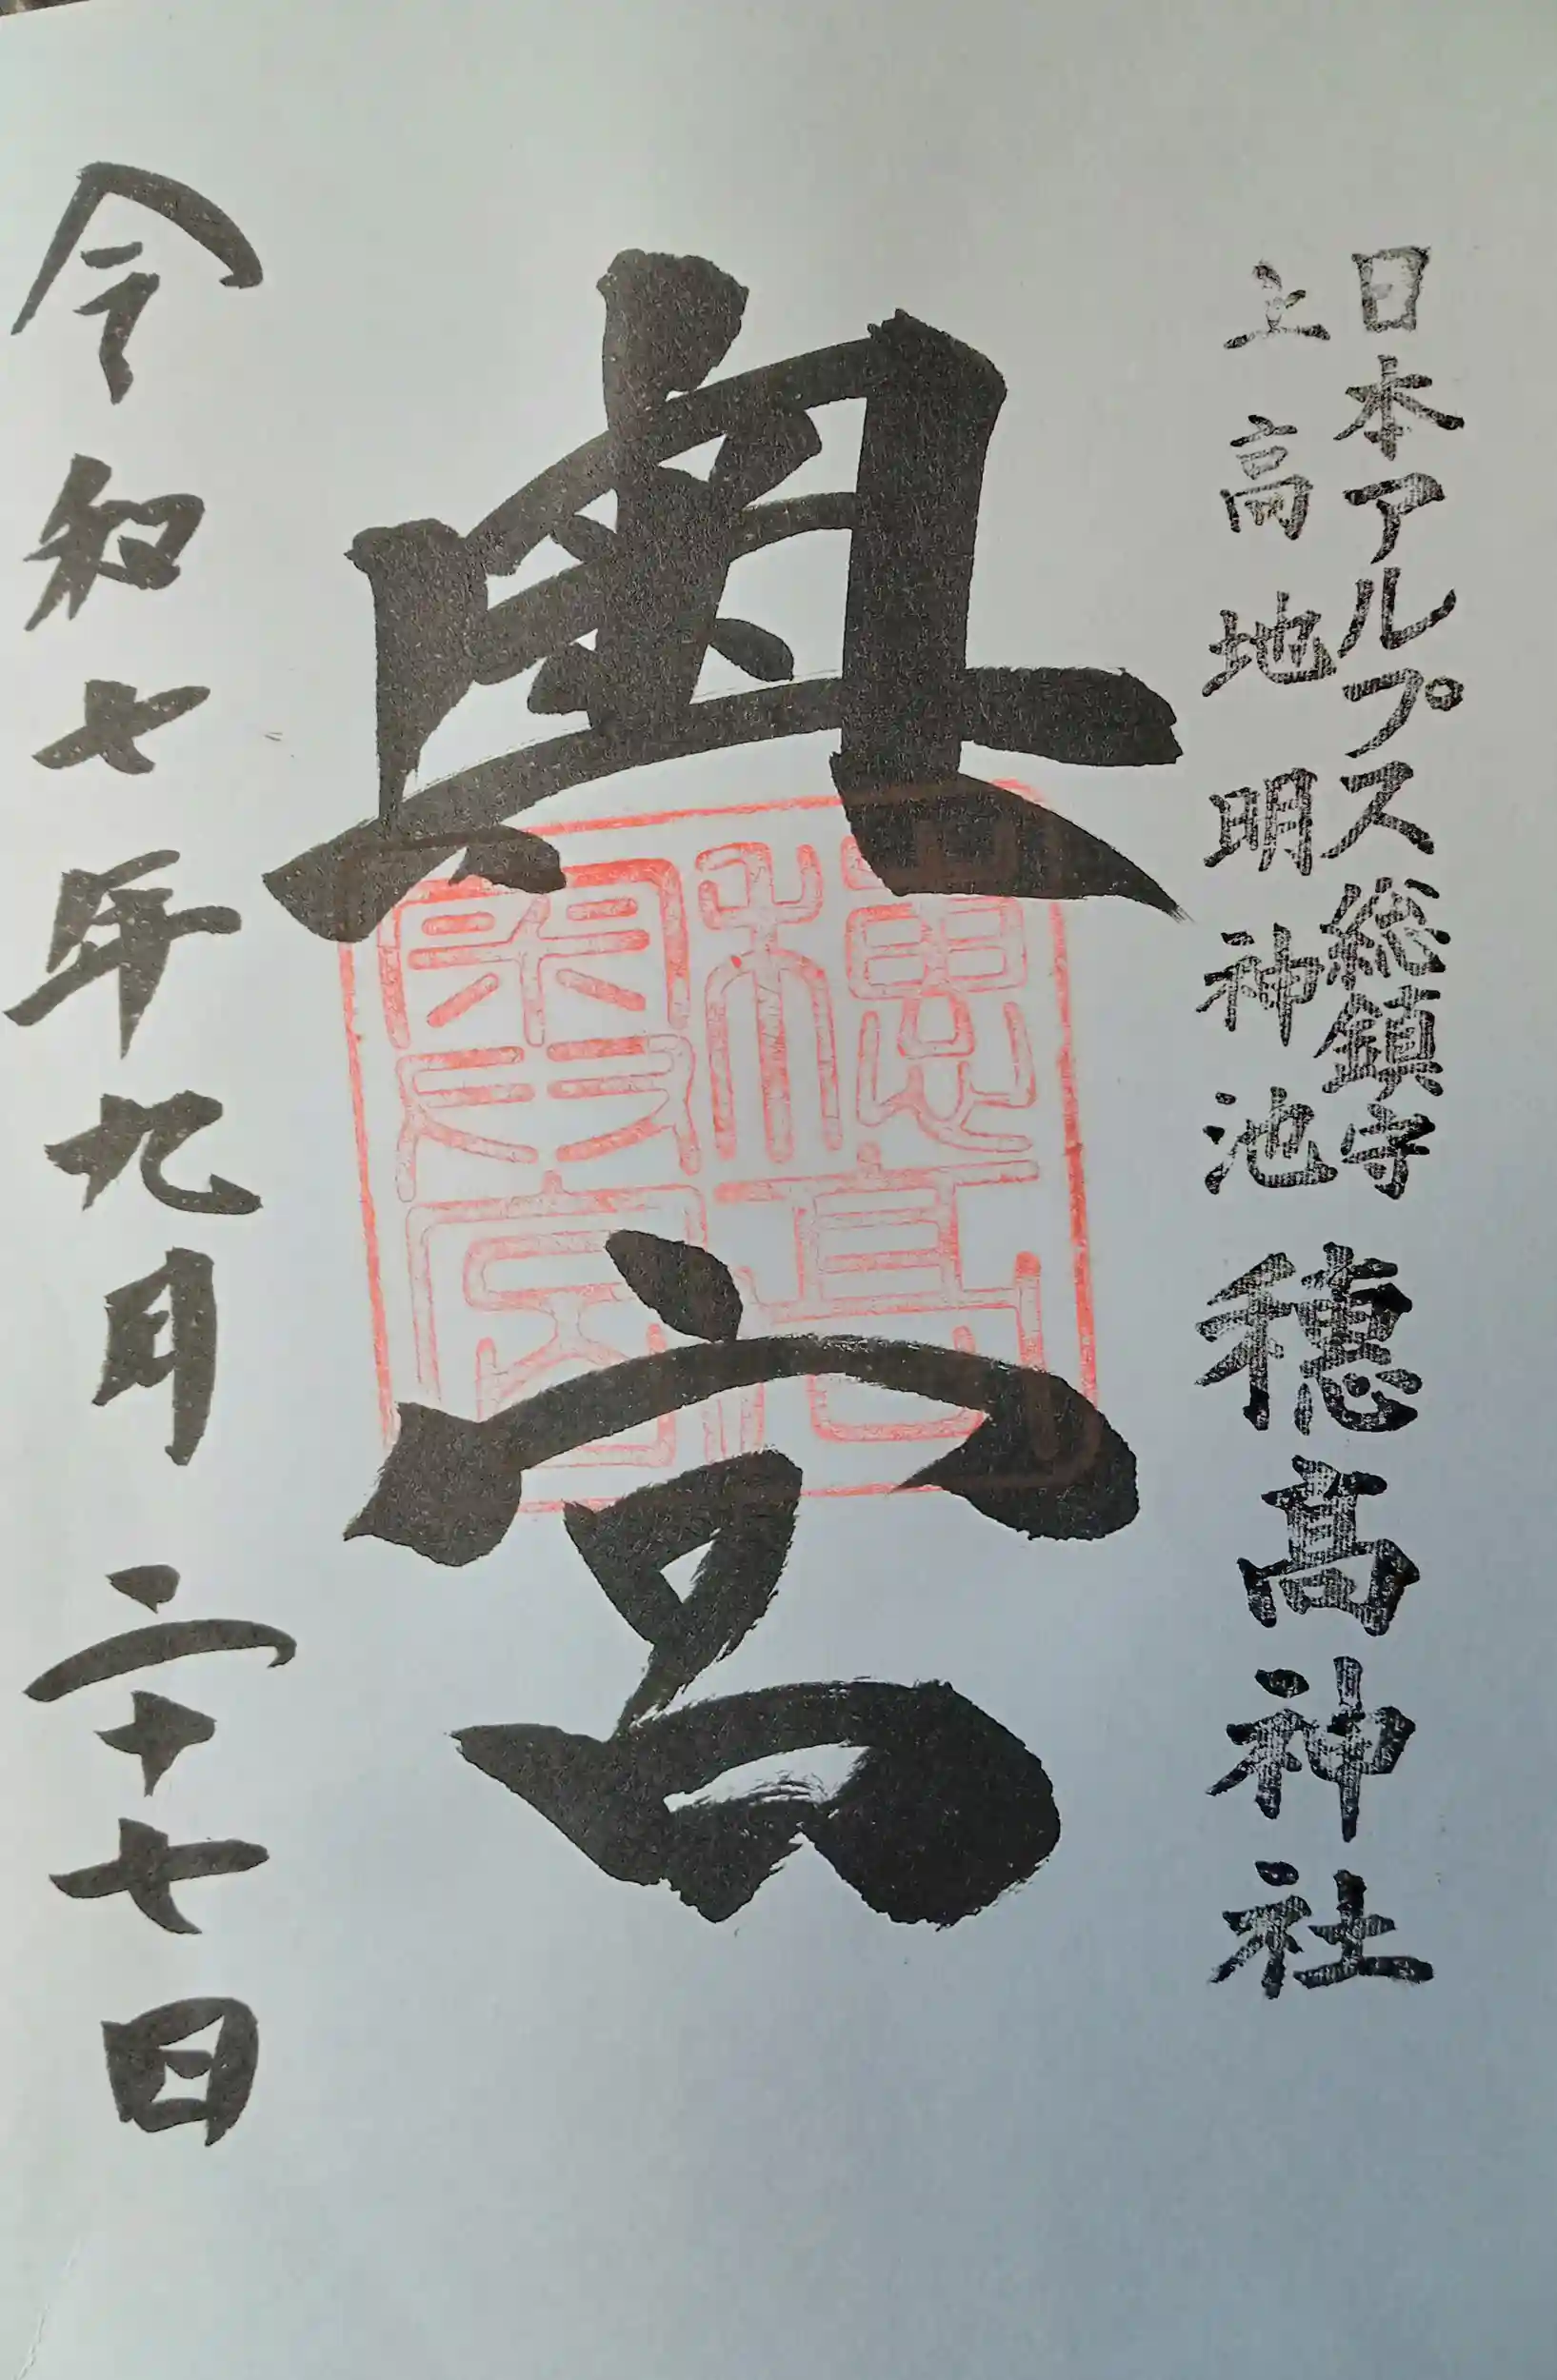 日本アルプス総鎮守
上高地明神池
穂髙神社
奥宮
穗高奥宮
令和七年九月二十七日